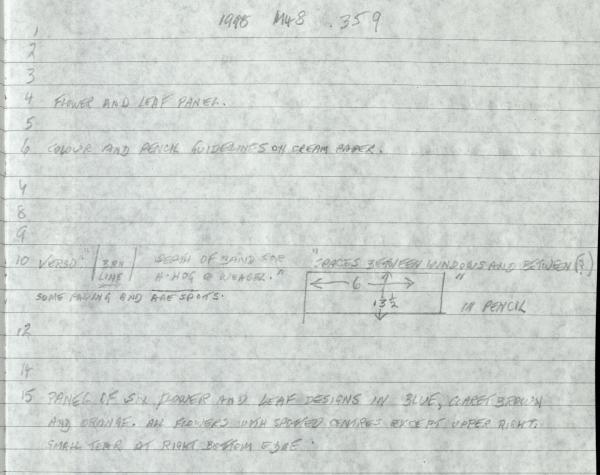 1995 M48 .359
1
2
3
4 FLOWER AND LEAF PANEL.
5
6 COLOUR AND PENCIL GUIDELINES ON CREAM PAPER.
8
9
10 VERSO " LINE DEPTH OF BAND FOR H.HOG & WEASEL." "SPACES BETWEEN WINDOWS AND BETWEEN (?)
6 "
3½ IN PENCIL
SOME FADING AND AGE SPOTS.
12
14
15 PANEL OF SIX FLOWER AND LEAF DESIGNS IN BLUE, CLARET BROWN
AND ORANGE. ALL FLOWERS WITH SPOTTED CENTRES EXCEPT UPPER RIGHT.
SMALL TEAR AT RIGHT BOTTOM EDGE.